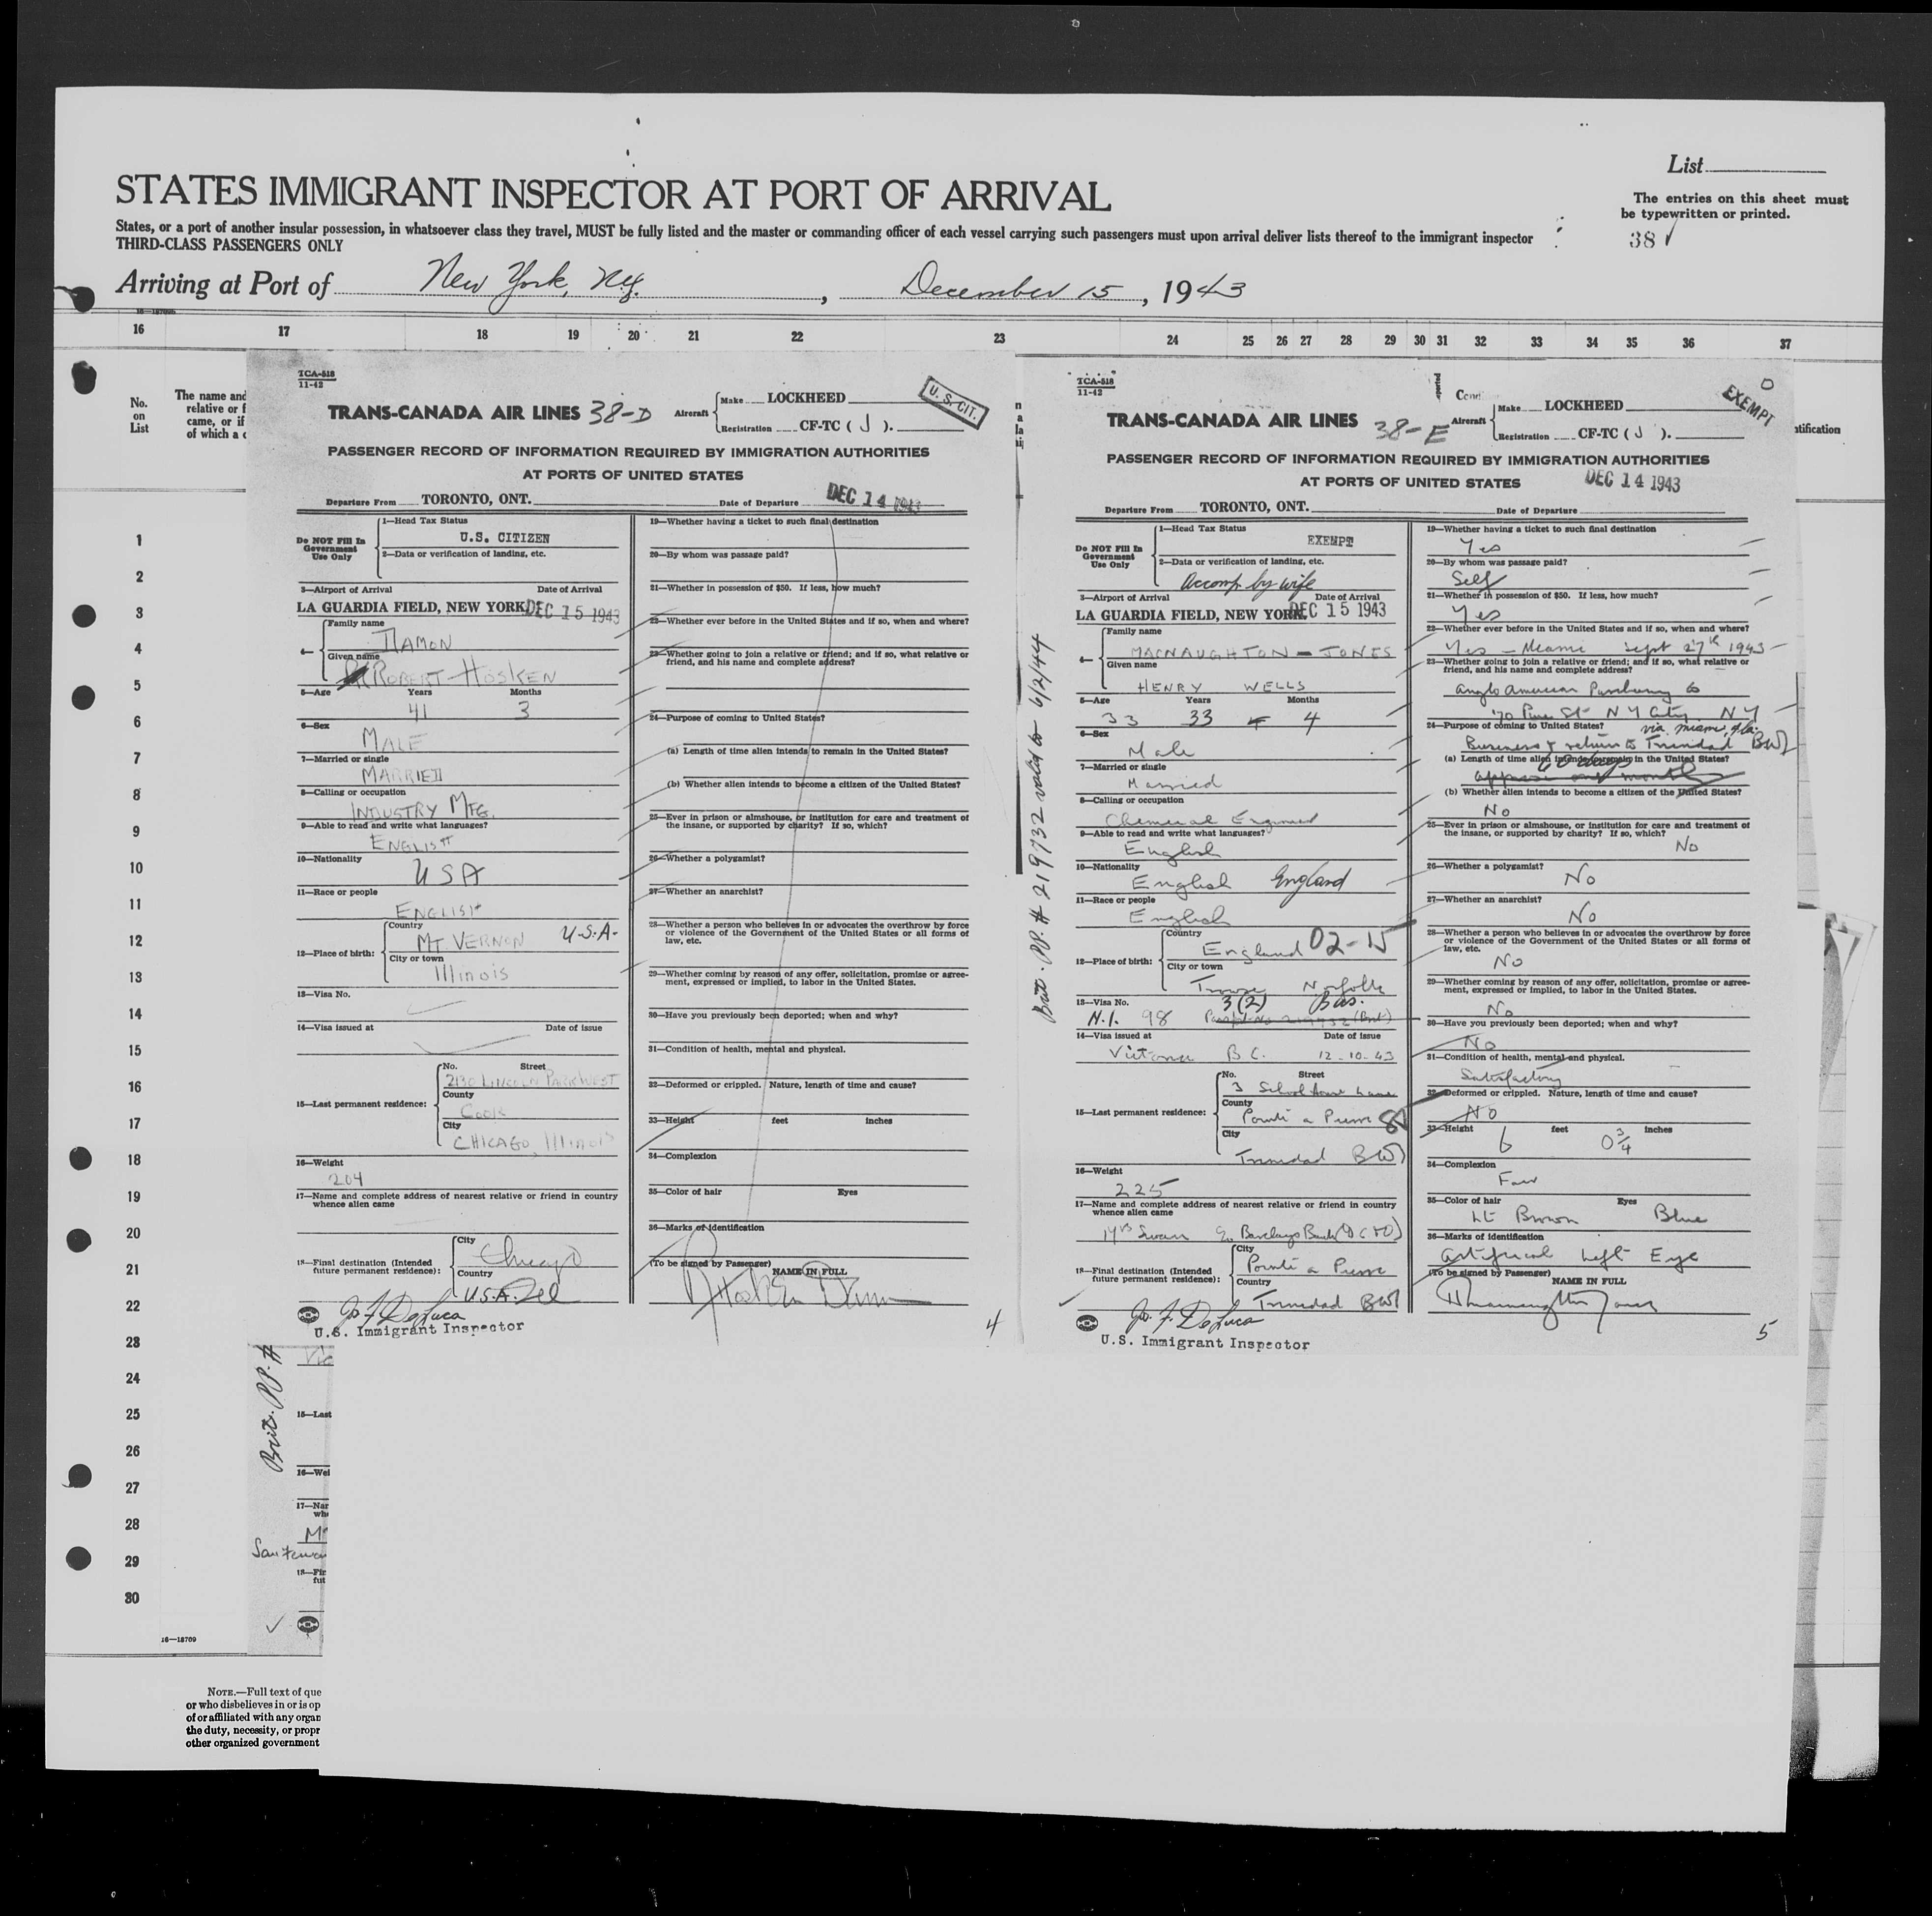 List
STATES IMMIGRANT INSPECTOR AT PORT OF ARRIVAL
The entries on this sheet must
be typewritten or printed.
States, or a port of another insular possession, in whatsoever class they travel, MUST be fully listed and the master or commanding officer of each vessel carrying such passengers must upon arrival deliver lists thereof to the immigrant inspector
THIRD-CLASS PASSENGERS ONLY
38
Arriving at Port of New York, NY. , December 15, 1943
16 17 18 19 20 21 22 23 24 25 26 27 28 29 30 31 32 33 34 35 36 37
No.
on
List
The name and
relative or f
came, or if
of which a c
1
2
3
4
5
6
7
8
9
10
11
12
13
14
15
16
17
18
19
20
21
22
23
24
25
26
27
28
29
30
16—18709
NOTE.—Full text of que
or who disbelieves in or is op
of or affiliated with any organ
the duty, necessity, or propr
other organized government
TCA-518
11-42
TRANS-CANADA AIR LINES 38-D
Aircraft
Make LOCKHEED
Registration CF-TC ( J ).
U. S. CIT.
PASSENGER RECORD OF INFORMATION REQUIRED BY IMMIGRATION AUTHORITIES
AT PORTS OF UNITED STATES
Departure From TORONTO, ONT. Date of Departure DEC 14 1943
Do NOT Fill In
Government
Use Only
1—Head Tax Status
U.S. CITIZEN
2—Data or verification of landing, etc.
3—Airport of Arrival Date of Arrival
LA GUARDIA FIELD, NEW YORK DEC 15 1943
4—
Family name
DAMON
Given name
ROBERT HOSKEN
5—Age Years Months
41 3
6—Sex
MALE
7—Married or single
MARRIED
8—Calling or occupation
INDUSTRY MFG.
9—Able to read and write what languages?
ENGLISH
10—Nationality
USA
11—Race or people
ENGLISH
12—Place of birth:
Country
MT VERNON U.S.A.
City or town
Illinois
13—Visa No.
14—Visa issued at Date of issue
15—Last permanent residence:
No. Street
2130 LINCOLN PARK WEST
County
COOK
City
CHICAGO, Illinois
16—Weight
204
17—Name and complete address of nearest relative or friend in country
whence alien came
18—Final destination (Intended
future permanent residence):
City
Chicago
Country
U.S.A. Ill
Jos. F. DeLuca
U.S. Immigrant Inspector
19—Whether having a ticket to such final destination
20—By whom was passage paid?
21—Whether in possession of $50. If less, how much?
22—Whether ever before in the United States and if so, when and where?
23—Whether going to join a relative or friend; and if so, what relative or
friend, and his name and complete address?
24—Purpose of coming to United States?
(a) Length of time alien intends to remain in the United States?
(b) Whether alien intends to become a citizen of the United States?
25—Ever in prison or almshouse, or institution for care and treatment of
the insane, or supported by charity? If so, which?
26—Whether a polygamist?
27—Whether an anarchist?
28—Whether a person who believes in or advocates the overthrow by force
or violence of the Government of the United States or all forms of
law, etc.
29—Whether coming by reason of any offer, solicitation, promise or agree-
ment, expressed or implied, to labor in the United States.
30—Have you previously been deported; when and why?
31—Condition of health, mental and physical.
32—Deformed or crippled. Nature, length of time and cause?
33—Height feet inches
34—Complexion
35—Color of hair Eyes
36—Marks of identification
(To be signed by Passenger)
NAME IN FULL
R Hosken Damon
4
TCA-518
11-42
TRANS-CANADA AIR LINES 38-E
Aircraft
Make LOCKHEED
Registration CF-TC ( J ).
EXEMPT
tification
PASSENGER RECORD OF INFORMATION REQUIRED BY IMMIGRATION AUTHORITIES
AT PORTS OF UNITED STATES DEC 14 1943
Departure From TORONTO, ONT. Date of Departure
Brit. PP. # 219732 valid to 6/2/44
Do NOT Fill In
Government
Use Only
1—Head Tax Status
EXEMPT
2—Data or verification of landing, etc.
Accomp by wife
3—Airport of Arrival Date of Arrival
LA GUARDIA FIELD, NEW YORK DEC 15 1943
4—
Family name
MACNAUGHTON-JONES
Given name
HENRY WELLS
5—Age Years Months
33 33 4
6—Sex
Male
7—Married or single
Married
8—Calling or occupation
Chemical Engineer
9—Able to read and write what languages?
English
10—Nationality
English England
11—Race or people
English
12—Place of birth:
Country
England 02-15
City or town
Trowse Norfolk
13—Visa No. 3(2) Bus.
N.I. 98 Passpt No 219732 (Brit)
14—Visa issued at Date of issue
Victoria B.C. 12-10-43
15—Last permanent residence:
No. Street
3 School House Lane
County
Pointe a Pierre
City
Trinidad BWI
16—Weight
225
17—Name and complete address of nearest relative or friend in country
whence alien came
Swan c/o Barclays Bank (D C & O)
18—Final destination (Intended
future permanent residence):
City
Pointe a Pierre
Country
Trinidad BWI
Jos. F. DeLuca
U.S. Immigrant Inspector
19—Whether having a ticket to such final destination
Yes
20—By whom was passage paid?
Self
21—Whether in possession of $50. If less, how much?
Yes
22—Whether ever before in the United States and if so, when and where?
Yes - Miami Sept 27th 1943
23—Whether going to join a relative or friend; and if so, what relative or
friend, and his name and complete address?
Anglo American Purchasing Co
70 Pine St N Y City. N Y
24—Purpose of coming to United States? via Miami, Fla.
Business & return to Trinidad BWI
(a) Length of time alien intends to remain in the United States?
approx one month
(b) Whether alien intends to become a citizen of the United States?
No
25—Ever in prison or almshouse, or institution for care and treatment of
the insane, or supported by charity? If so, which?
No
26—Whether a polygamist?
No
27—Whether an anarchist?
No
28—Whether a person who believes in or advocates the overthrow by force
or violence of the Government of the United States or all forms of
law, etc.
No
29—Whether coming by reason of any offer, solicitation, promise or agree-
ment, expressed or implied, to labor in the United States.
No
30—Have you previously been deported; when and why?
No
31—Condition of health, mental and physical.
Satisfactory
32—Deformed or crippled. Nature, length of time and cause?
No
33—Height 6 feet 0 3/4 inches
34—Complexion
Fair
35—Color of hair Eyes
Lt Brown Blue
36—Marks of identification
Artificial Left Eye
(To be signed by Passenger)
NAME IN FULL
5
Brit. PP. #
Vic
15—Last
16—Wei
17—Nar
whe
M
18—Fin
fut